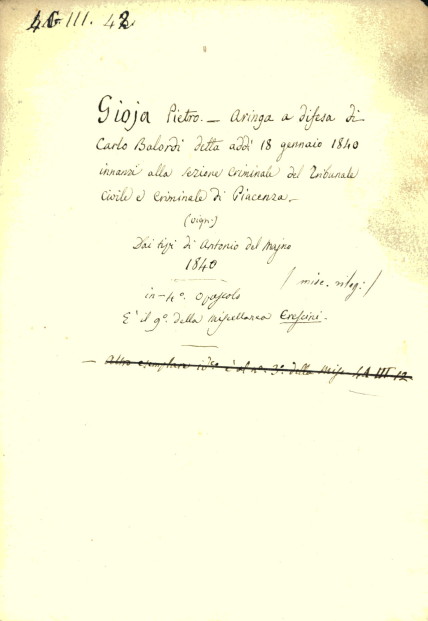 III. 42
Gioja Pietro. — Aringa a difesa di
Carlo Balordi detta addì 18 gennaio 1840
innanzi alla sezione criminale del Tribunale
civile e criminale di Piacenza. —
(vign:)
Dai tipi di Antonio del Majno
1840
/ misc. rileg: /
in-4°. opuscolo
E' il 9°. della miscellanea Crescini.
— Altro esemplare è al n°. 3°. della Misc. 4A III 12